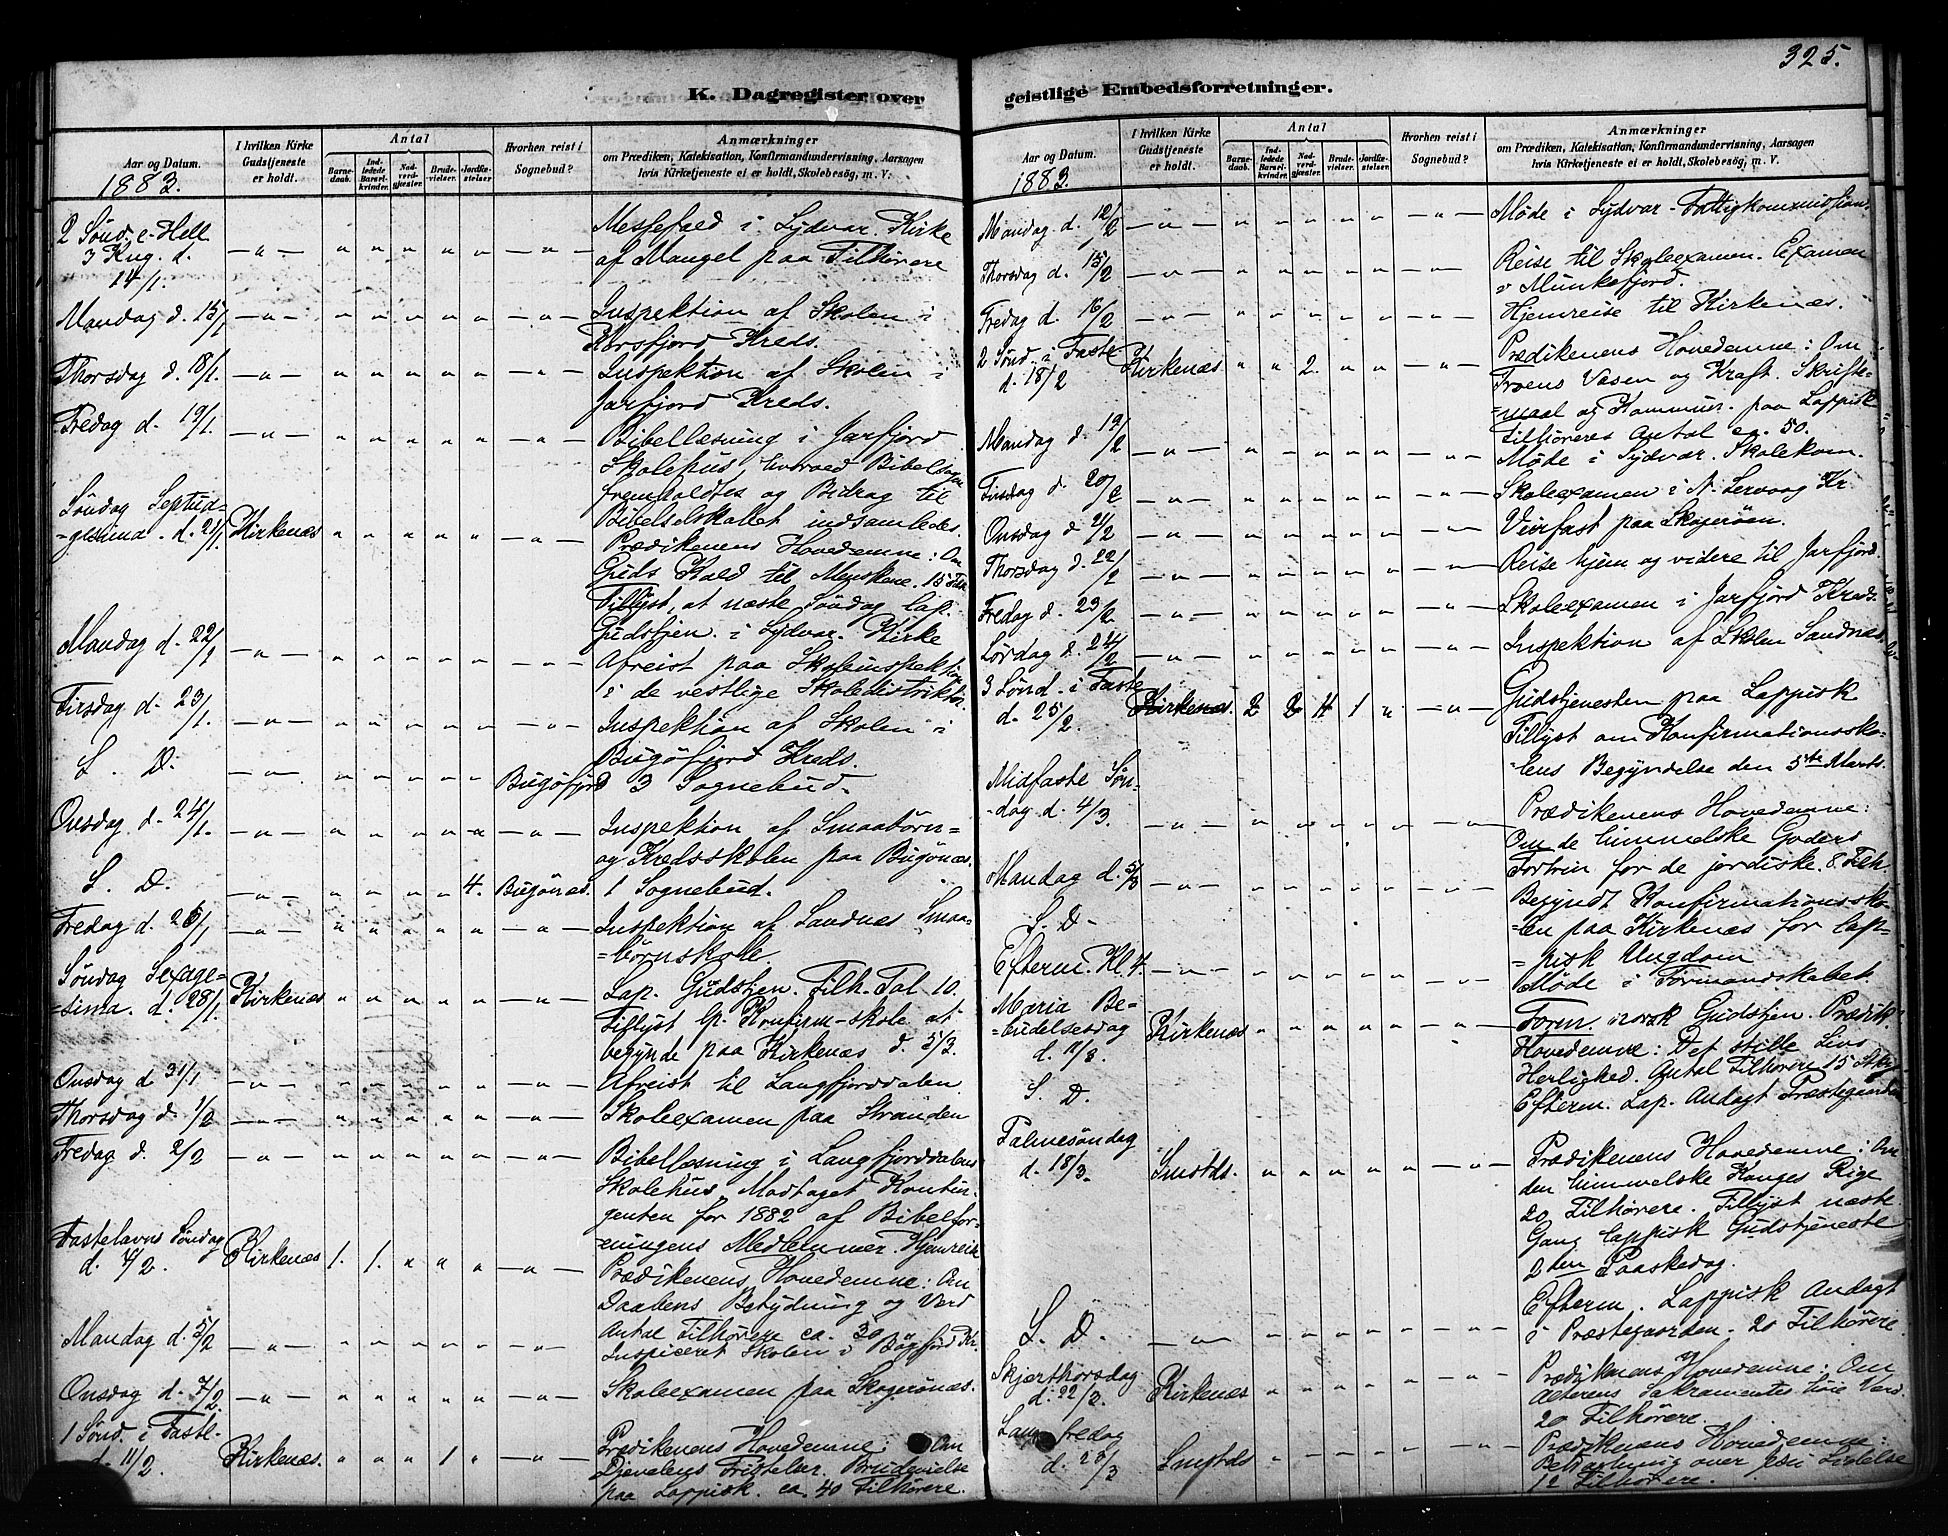 325.
K. Dagregister over
geistlige Embedsforretninger.
Aar og Datum.
1883.
I hvilken Kirke Gudstjeneste er holdt.
Antal
Barnedaab.
Indledede Barselkvinder.
Nadverdgjester.
Brudevielser.
Jordfæstelser
Hvorhen reist i Sognebud?
Anmærkninger
om Prædiken, Katekisation, Konfirmandundervisning, Aarsagen
hvis Kirketjeneste ei er holdt, Skolebesög, m. V.
2 Sönd. e. Hell.
3 Kng. d.
14/1.
Messefald i Sydvar. Kirke
af Mangel paa Tilhörere
Mandag d. 15/1
Inspektion af Skolen i
Korsfjord Kreds.
Thorsdag d. 18/1.
Inspektion af Skolen i
Jarfjord Kreds.
Fredag d. 19/1.
Bibellæsning i Jarfjord
Skolehus, hvorved Bibelsagen
fremholdtes og Bidrag til
Bibelselskabet indsamledes.
Söndag Septua-
=gesima. d. 21/1. Kirkenæs
Prædikenens Hovedemne: Om
Guds Kald til Menskene. 15 Tilh
Tillyst, at næste Söndag lap.
Gudstjen. i Sydvar. Kirke
Mandag d. 22/1
Afreist paa Skoleinspektion
i de vestlige Skoledistrikter.
Tirsdag d. 23/1.
Inspektion af Skolen i
Bugöfjord Kreds.
S. D.
Bugöfjord 3 Sognebud.
Onsdag d. 24/1.
Inspektion af Smaabörn=
og Kredsskolen paa Bugönæs.
S. D. 4. Bugönæs. 1 Sognebud.
Fredag d. 26/1
Inspektion af Sandnæs Smaa=
=börnskole.
Söndag Sexage=
=sima. d. 28/1. Kirkenæs
Lap. Gudstjen. Tilh. Tal 10.
Tillyst lp. Konfirm-skole at
begynde paa Kirkenæs d. 5/3.
Onsdag d. 31/1
Afreist til Langfjorddalen
Thorsdag d. 1/2
Skoleexamen paa Stranden
Fredag d. 2/2
Bibellæsning i Langfjorddalens
Skolehus. Modtaget Kontin-
genten for 1882 af Bibelfor-
eningens Medlemmer. Hjemreise
Fastelavns Söndag
d. 4/2. Kirkenæs 1. 1.
Prædikenens Hovedemne: Om
Daabens Betydning og Værd
Antal Tilhörere ca. 30
Mandag d. 5/2
Inspiceret Skolen i Bögfjord Kr.
Onsdag d. 7/2
Skoleexamen paa Skogerönæs.
1 Sönd. i Faste-
d. 11/2. Kirkenæs. 1
Prædikenens Hovedemne: Om
Djevelens Fristelser. Brudevielse
paa Lappisk. ca. 40 Tilhörere.
Aar og Datum.
1883.
I hvilken Kirke Gudstjeneste er holdt.
Antal
Barnedaab.
Indledede Barselkvinder.
Nadverdgjester.
Brudevielser.
Jordfæstelser.
Hvorhen reist i Sognebud?
Anmærkninger
om Prædiken, Katekisation, Konfirmandundervisning, Aarsagen
hvis Kirketjeneste ei er holdt, Skolebesög, m. V.
Mandag d. 12/2
Möde i Sydvar. Fattigkommission.
Thorsdag d. 15/2
Reise til Skoleexamen. Examen
v Munkefjord.
Fredag d. 16/2
Hjemreise til Kirkenæs.
2 Sönd. i Faste
d. 18/2 Kirkenæs 2.
Prædikenens Hovedemne: Om
Troens Væsen og Kraft. Skrifte-
=maal og Kommun. paa Lappisk
Tilhöreres Antal ca. 50.
Mandag d. 19/2
Möde i Sydvar. Skolekom.
Tirsdag d. 20/2
Skoleexamen i N. Lervaag Kr.
Onsdag d. 21/2
Veirfast paa Skogeröen.
Thorsdag d. 22/2
Reise hjem og videre til Jarfjord.
Fredag d. 23/2
Skoleexamen i Jarfjord Kreds.
Lördag d. 24/2
Inspektion af Skolen Sandnæs
3 Sönd. i Faste
d. 25/2. Kirkenæs. 2 2 4 1
Gudstjenesten paa Lappisk.
Tillyst om Konfirmationssko-
=lens Begyndelse den 5te Marts.
Midfaste Sön-
=dag d. 4/3.
Prædikenens Hovedemne:
Om de himmelske Goders
Fortrin for de jordiske. 8 Tilh.
Mandag d. 5/3
Begyndt Konfirmationssko-
=len paa Kirkenæs for lap-
=pisk Ungdom
S. D.
Efterm. Kl. 4.
Möde i Formandskabet.
Maria Be-
=budelsesdag
d. 11/3. Kirkenæs
Form. norsk Gudstjen. Prædik.
Hovedemne: Det stille Livs
Herlighed. Antal Tilhörere 15
S. D.
Efterm. Lap. Andagt Præstegaarden
Palmesöndag
d. 18/3.
Prædikenens Hovedemne: Om
den himmelske Konges Rige
20 Tilhörere. Tillyst næste
Gang lappisk Gudstjeneste
2den Paaskedag.
S. D.
Efterm. Lappisk Andagt
i Præstegaarden. 20 Tilhörere.
Skjærthorsdag
d. 22/3. Kirkenæs
Prædikenens Hovedemne: Om
Alterens Sakramentes höie Værd.
20 Tilhörere.
Langfredag
d. 23/3
Prædikenens Hovedemne:
Betragtning over Jesu Lidelse
12 Tilhörere.